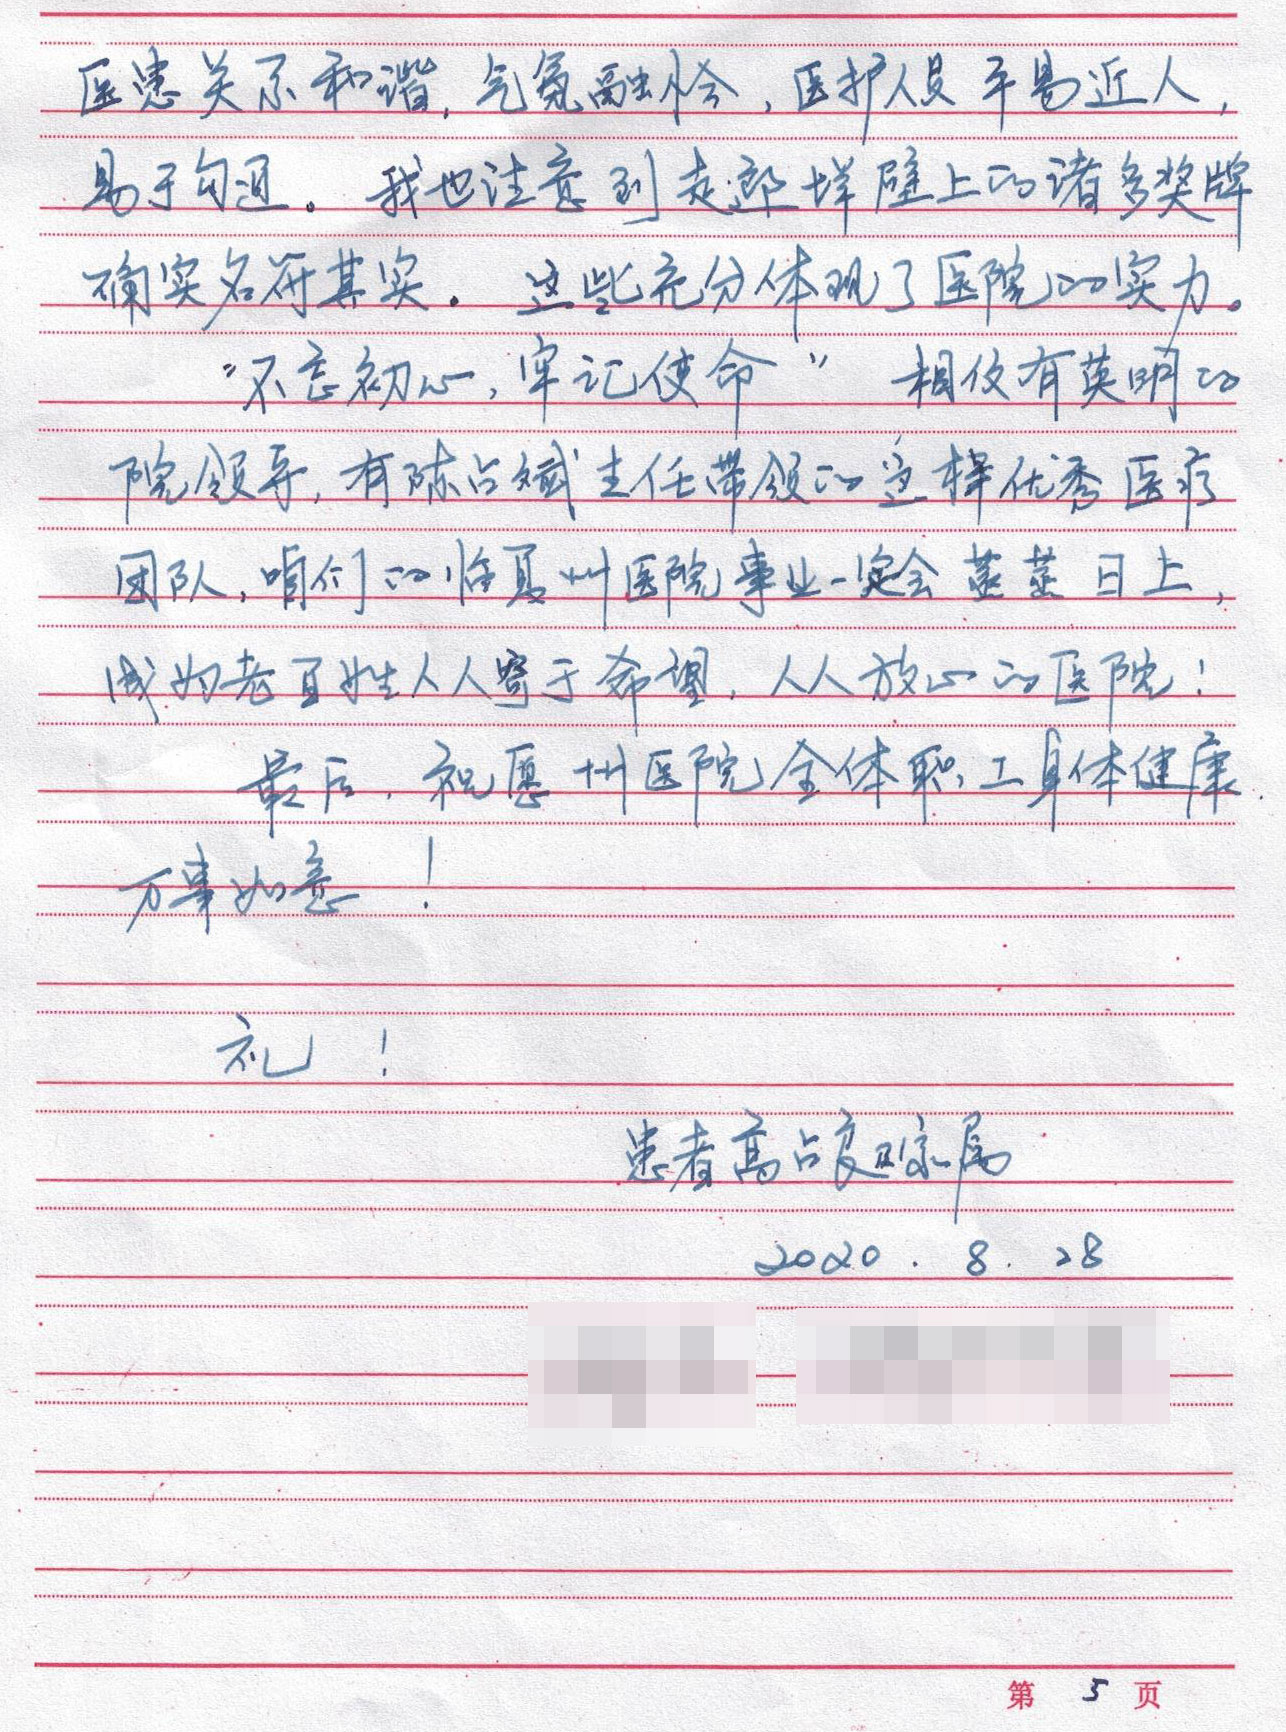 医患关系和谐，气氛融恰，医护人员平易近人，
易于勾通。我也注意到走廊墙壁上的诸多奖牌
确实名符其实。这些充分体现了医院的实力。
“不忘初心，牢记使命” 相伩有英明的
院领导，有陈占斌主任带领的这样优秀医疗
团队，咱们的临夏州医院事业一定会蒸蒸日上，
成为老百姓人人寄于希望，人人放心的医院！
最后，祝愿州医院全体职工身体健康.
万事如意！
礼！
患者高占良家属
2020.8.28
第 5 页